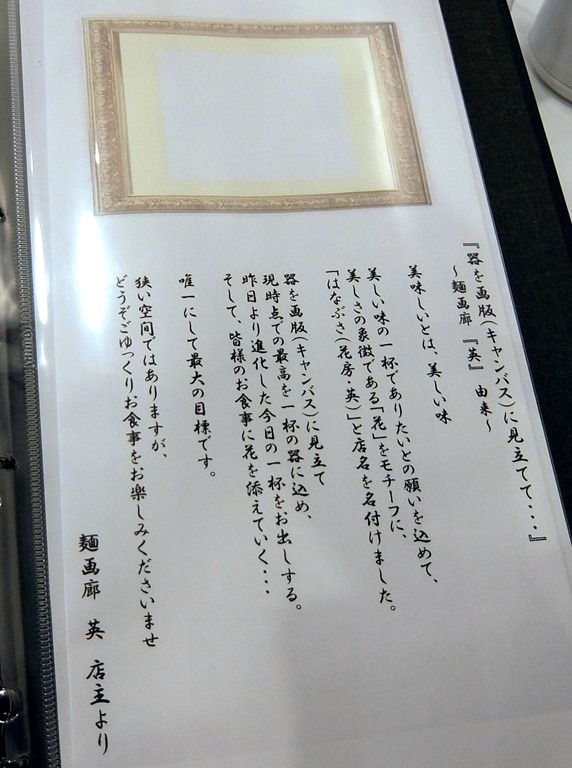 『器を画版(キャンバス)に見立てて・・・』
～麺画廊 『英』 由来～
美味しいとは、美しい味
美しい味の一杯でありたいとの願いを込めて、
美しさの象徴である「花」をモチーフに、
「はなぶさ(花房・英)」と店名を名付けました。
器を画版(キャンバス)に見立て
現時点での最高を一杯の器に込め、
昨日より進化した今日の一杯をお出しする。
そして、皆様のお食事に花を添えていく・・・
唯一にして最大の目標です。
狭い空間ではありますが、
どうぞごゆっくりお食事をお楽しみくださいませ
麺画廊 英 店主より